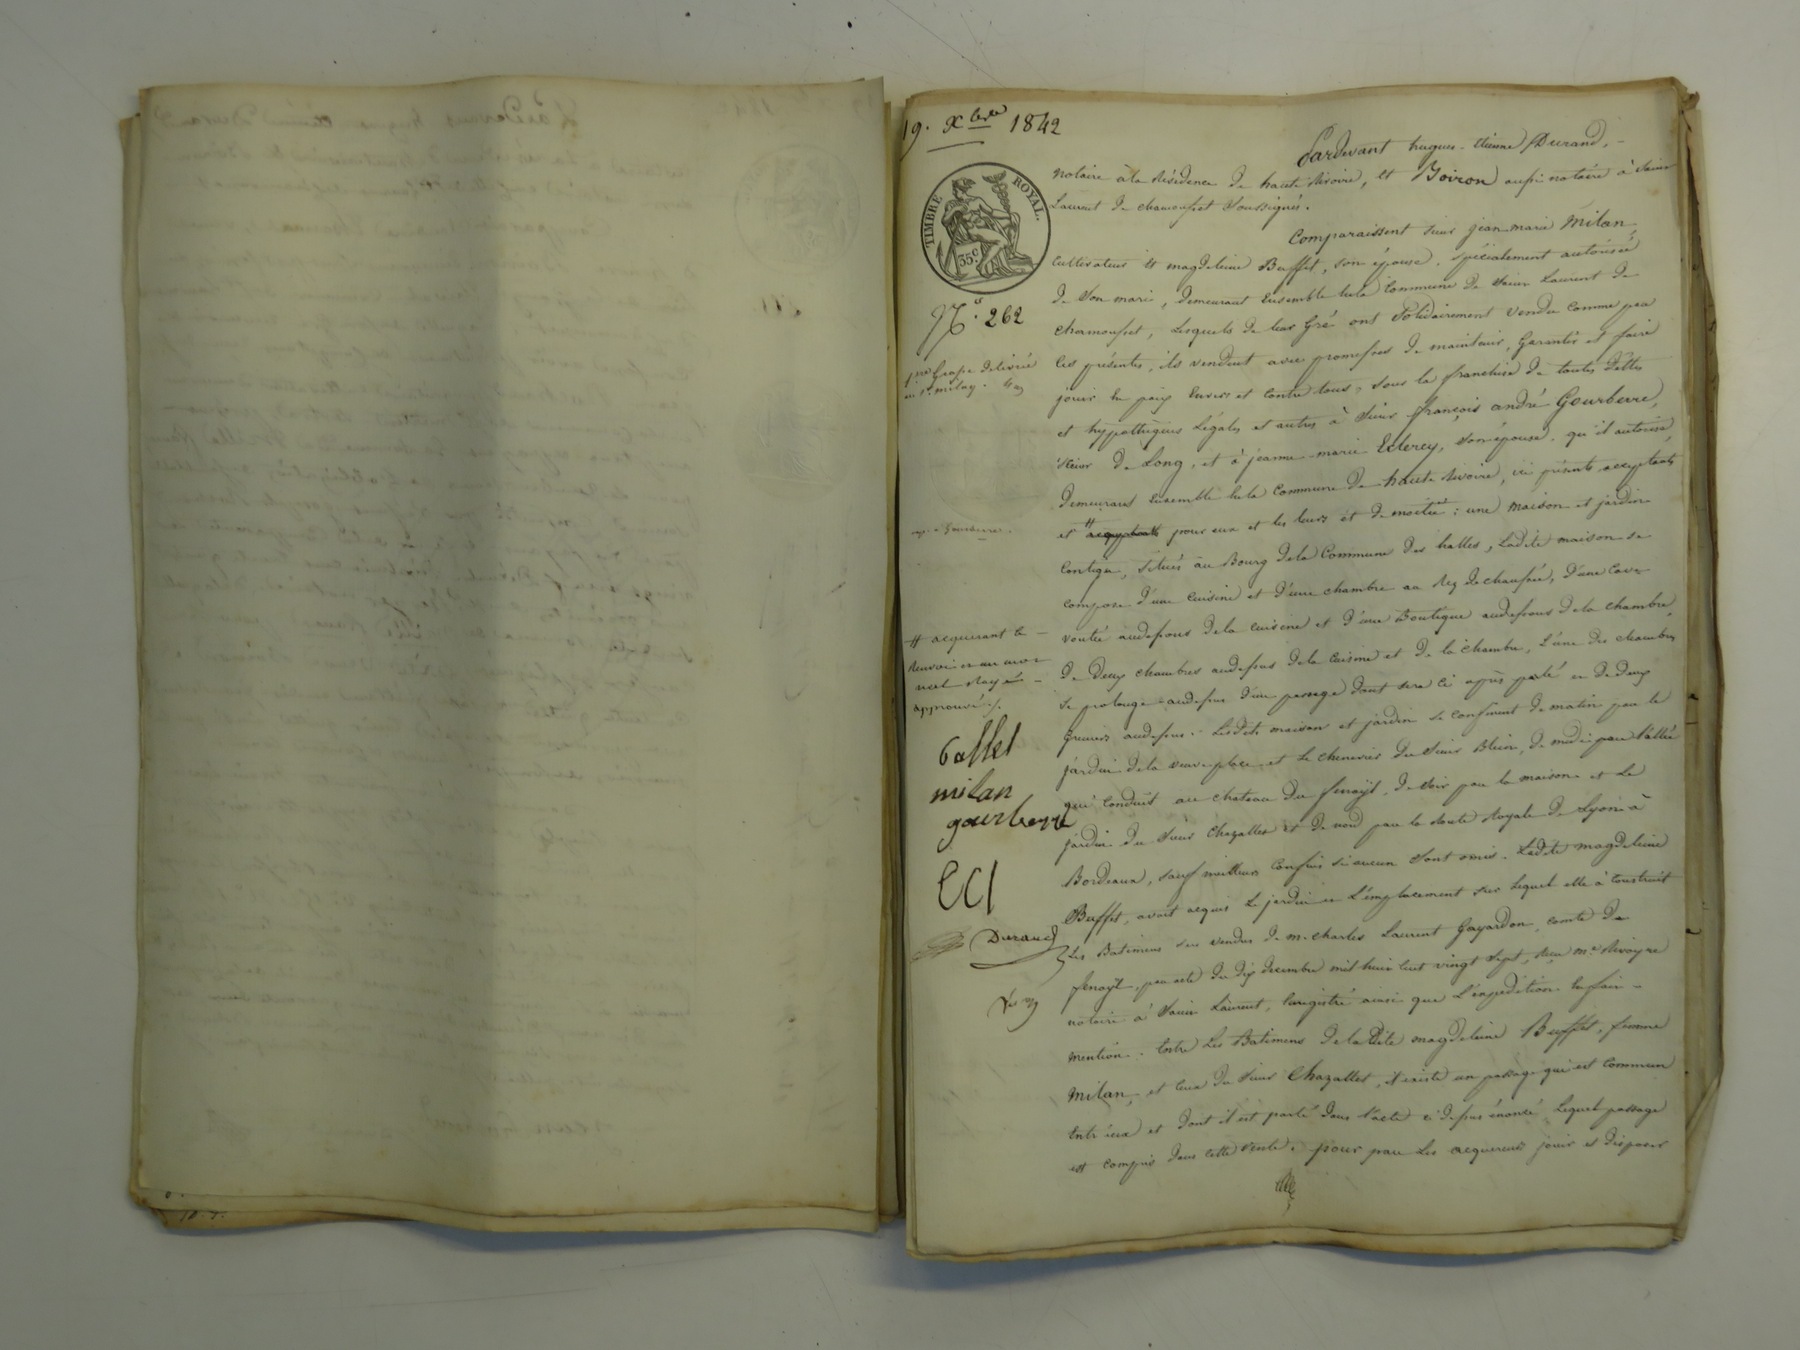 19. Xbre 1842
TIMBRE ROYAL.
35c
No. 262
1re Grosse délivrée
au Sr. milan.
# acquerant le
renvoi et un mot
nul rayé
approuvé ./.
Buffet
milan
gourbeyre
ECl
Durand
Pardevant hugues-étienne Durand,
notaire à la Résidence de haute Rivoire, et Boiron aussi notaire à Saint
Laurent de chamousset soussignés.
Comparaissent sieur jean-marie Milan,
cultivateur et magdeleine Buffet, son épouse, spécialement autorisée
de son mari, demeurant ensemble en la Commune de Saint Laurent de
chamousset, Lesquels de leur Gré ont solidairement vendu comme par
ces présentes, ils vendent avec promesses de maintenir, Garantir et faire
jouir en paix envers et contre tous, sous la franchise de toutes dettes
et hypothèques Légales et autres à Sieur françois andré Gourbeyre,
de Long, et à jeanne-marie Eclercy, son épouse, qu'il autorise,
demeurant ensemble en la Commune de haute Rivoire, ici présents acceptants
et # acceptants pour eux et les leurs et de moitié : une maison et jardin
contigu, situés au Bourg de la Commune des halles, Ladite maison se
compose d'une cuisine et d'une chambre au Rez de chaussée, d'une Cave
voutée audessous de la cuisine et d'une Boutique audessous de la chambre,
de deux chambres audessus de la cuisine et de la chambre, L'une des chambres
se prolonge audessus d'un passage dont sera ci après parlé et de deux
Greniers audessus. Lesdits maison et jardin se confinent de matin par le
jardin de la veuve place et le chenevier du Sieur Blein, de midi par l'allée
qui conduit au chateau du fenoyt, de soir par la maison et Le
jardin du sieur Chazallet et de nord par la Route Royale de Lyon à
Bordeaux, sauf meilleurs confins si aucun sont omis. Ladite magdeleine
Buffet, avait acquis Le jardin et L'emplacement sur Lequel elle a construit
Les Batimens sus vendus de m. charles Laurent Gayardon, comte du
fenoyt, par acte du dix decembre mil huit cent vingt sept, reçu me. Rivoyre
notaire à Saint Laurent, Enregistré ainsi que L'expédition en fait
mention. Entre Les Batimens de la Dite magdeleine Buffet, femme
Milan, et ceux du sieur Chazallet, il existe un passage qui est commun
entr'eux et dont il est parlé dans l'acte ci dessus énoncé, Lequel passage
est compris dans cette vente. pour par Les acquereurs jouir et disposer